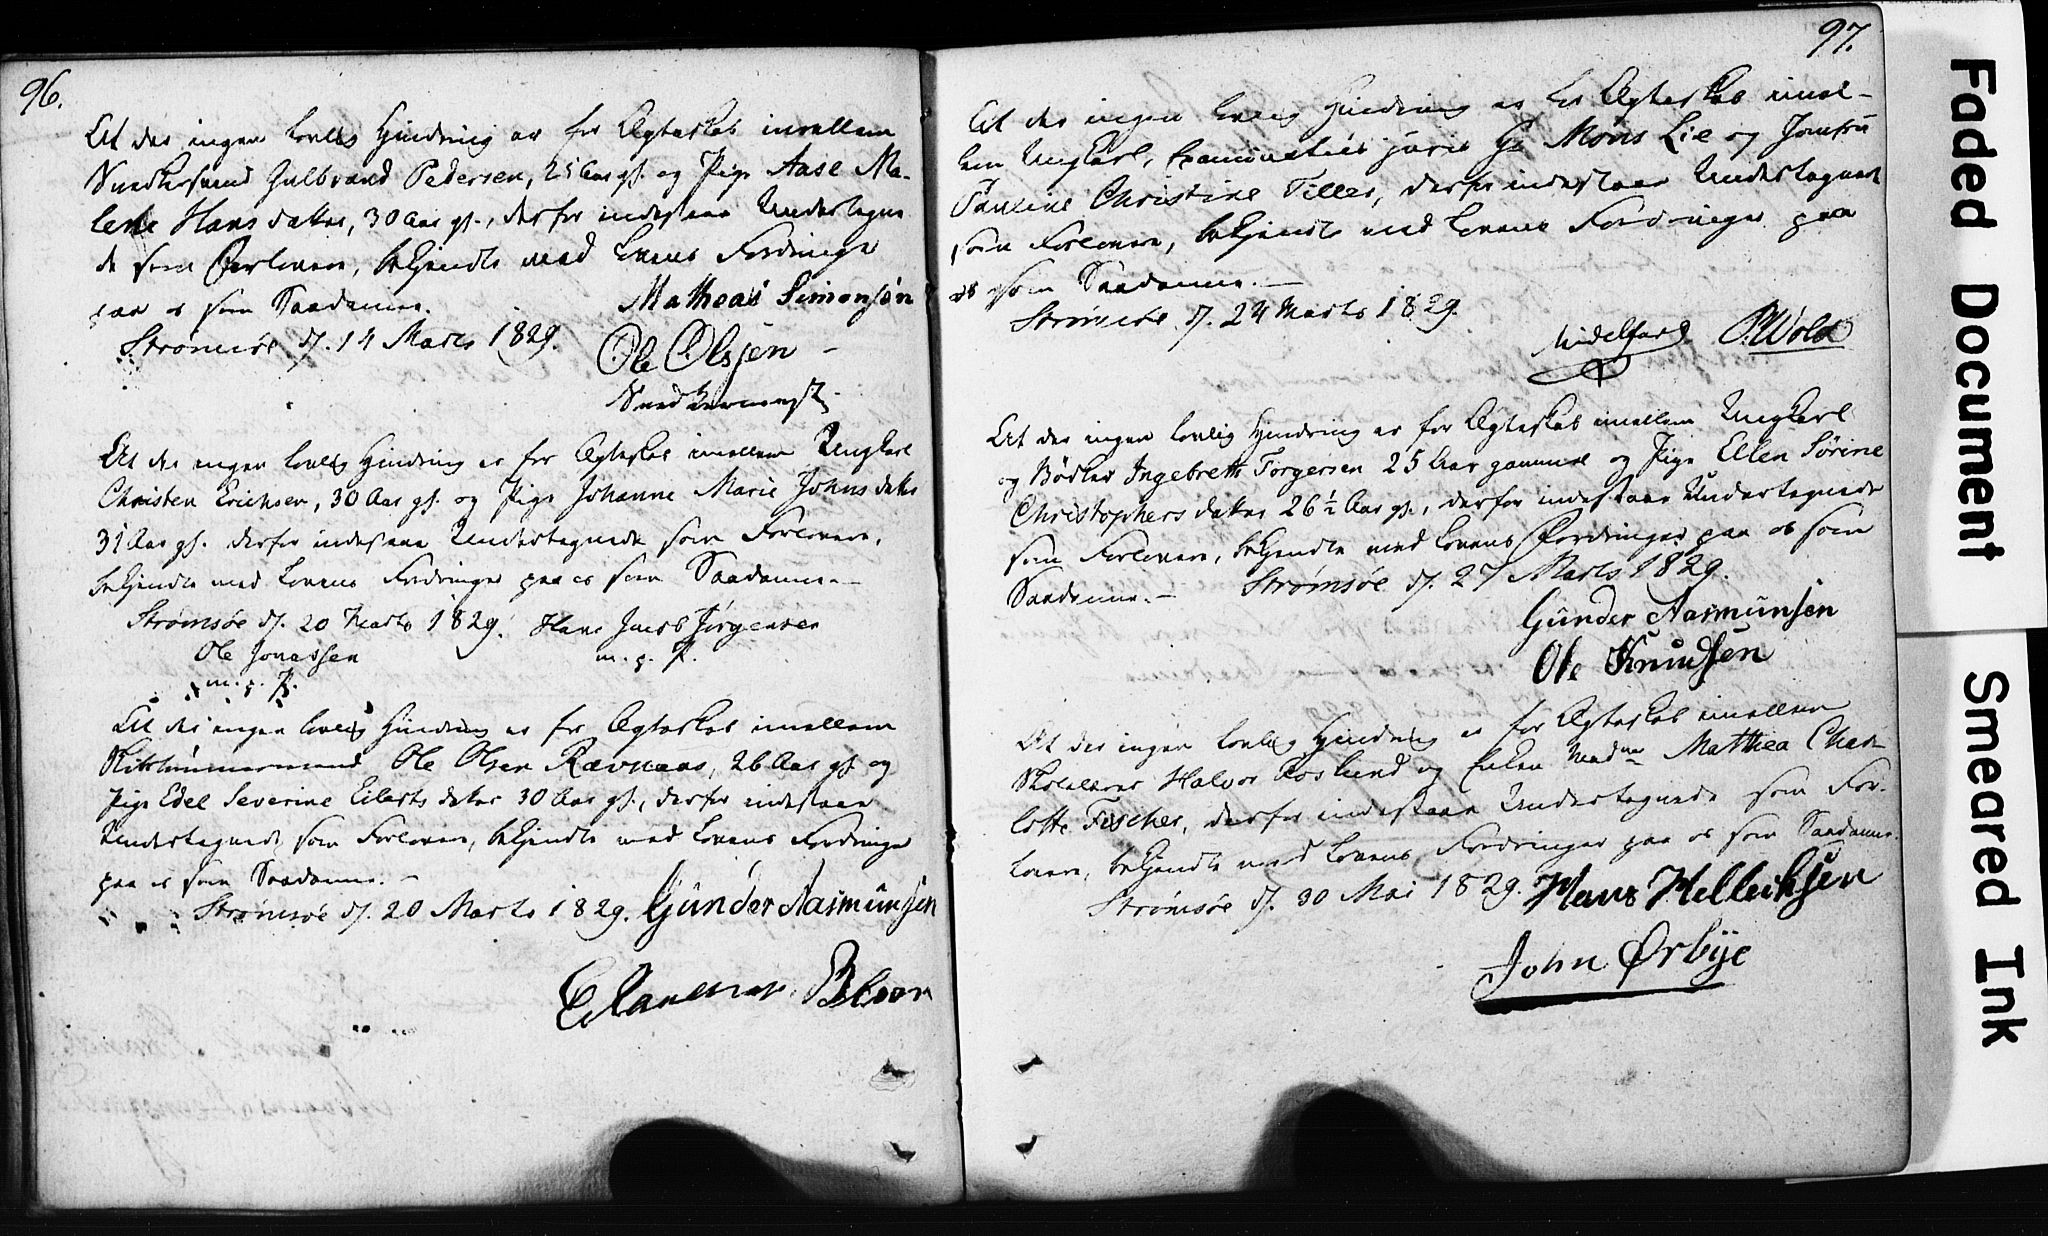 96.
At der ingen lovlig Hindring er for Ægteskab imellem
Snedkersvend Gulbrand Pedersen, 25 Aar gl. og Pige Aase Ma-
lene Hansdatter, 30 Aar gl., derfor indestaae Undertegne
de som Forlovere, bekjendte med Lovens Fordringer
paa os som Saadanne.
Strømsøe d. 14 Marts 1829.
Matheas Simonsen
Ole Olsen
At der ingen lovlig Hindring er for Ægteskab imellem Ungkarl
Christen Erichsen, 30 Aar gl. og Pige Johanne Marie Johnsdatter
31 Aar gl. derfor indestaae Undertegnede som Forlovere,
bekjendte med Lovens Fordringer paa os som Saadanne.-
Strømsøe d. 20 Marts 1829. Hans Jacob Jørgensen
Ole Jonassen m. p. P.
m. p. P.
At der ingen lovlig Hindring er for Ægteskab imellem
Skibstømmermand Ole Olsen Ravnaas, 26 Aar gl. og
Pige Edel Severine Eilertsdatter 30 Aar gl., derfor indestaae
Undertegnede som Forlovere, bekjendte med Lovens Fordringer
paa os som Saadanne. -
Strømsøe d. 20 Marts 1829. Günder Aasmundsen
97.
At der ingen lovlig Hindring er for Ægteskab imel-
lem Ungkarl, Examinatus juris Hr Mons Lie og Jomfru
Pauline Christine Tiller, derfor indestaae Undertegnede
som Forlovere, bekjendte med Lovens Fordringer paa
os som Saadanne.-
Strømsøe d. 24 Marts 1829.
Midelfart P. Wold
At der ingen lovlig Hindring er for Ægteskab imellem Ungkarl
og Bødker Ingebreth Torgersen 25 Aar gammel og Pige Ellen Sørine
Christophersdatter 26 1/2 Aar gl., derfor indestaae Undertegnede
som Forlovere, bekjendte med Lovens Fordringer paa os som
Saadanne.- Strømsøe d. 27 Marts 1829.
Günder Aasmundsen
Ole Knudsen
At der ingen lovlig Hindring er for Ægteskab imellem
Halvor Roslund og Enken Mad. Matthea Char-
lotte Fischer, derfor indestaae Undertegnede som For-
lovere, bekjendte med Lovens Fordringer paa os som Saadanne.
Strømsøe d. 30 Mai 1829. Hans Helleriksen
John Ørbÿe
Faded Document
Smeared Ink